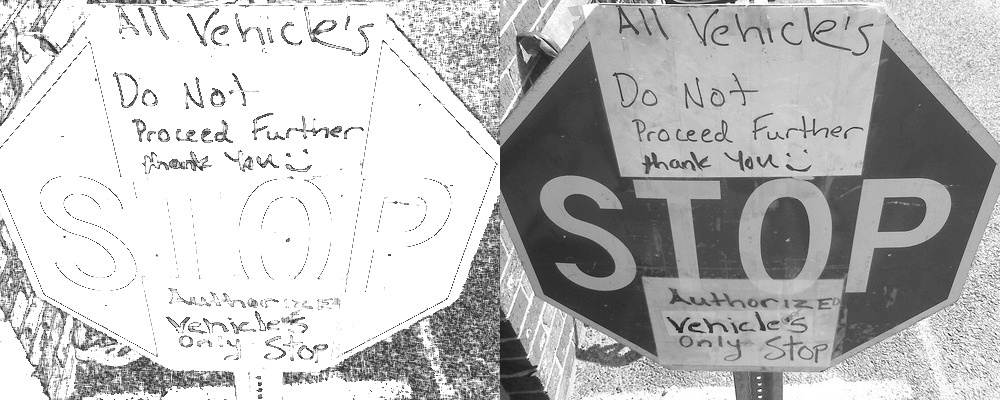 All Vehicle's
Do Not
Proceed Further
thank You :)
STOP
Authorized
Vehicle's
Only Stop
All Vehicle's
Do Not
Proceed Further
thank You :)
STOP
AuthorIZED
Vehicle's
Only Stop